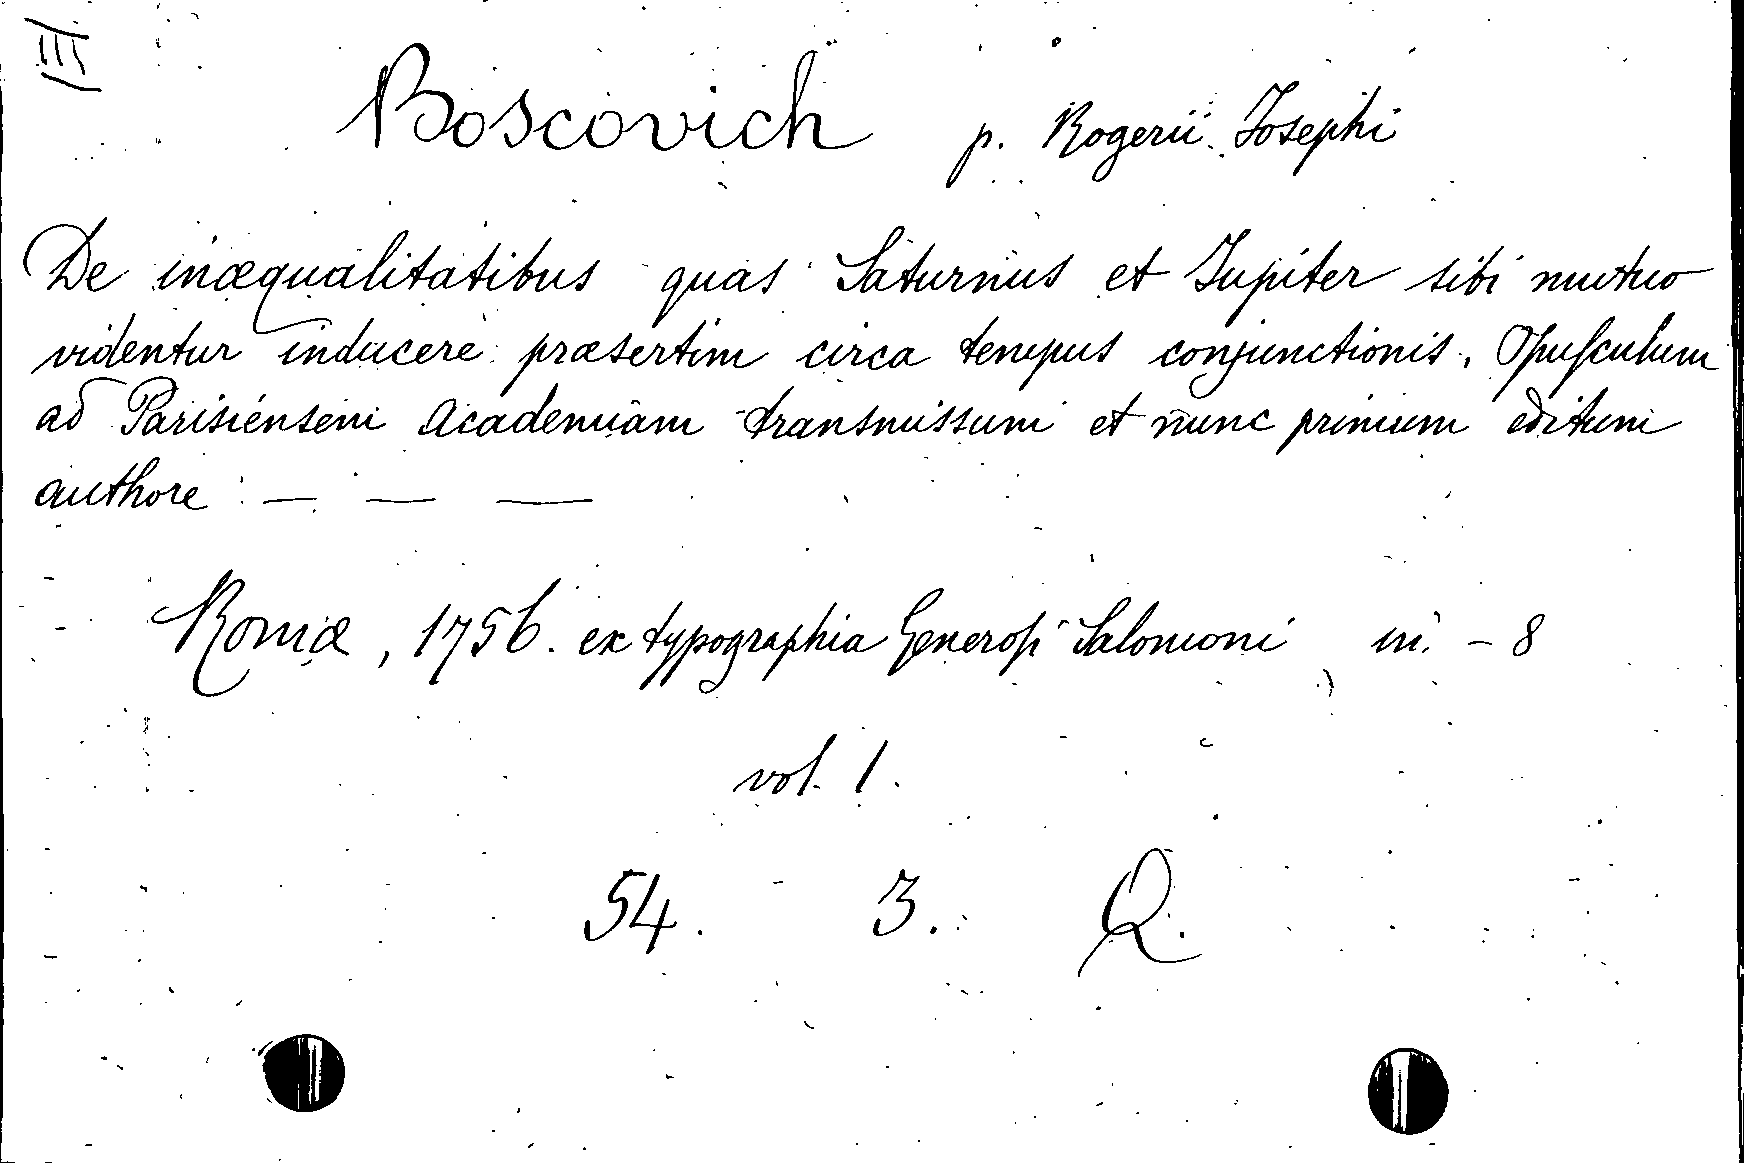 III
Boscovich p. Rogerii Josephi
De inæqualitatibus quas Saturnus et Jupiter sibi mutuo
videntur inducere præsertim circa tempus conjunctionis. Opuſculum
ad Parisiensem Academiam transmissum et nunc primum editum
authore : — — —
Romæ, 1756. ex typographia Generoſi Salomoni in. - 8
vol. 1.
54. 3. Q.